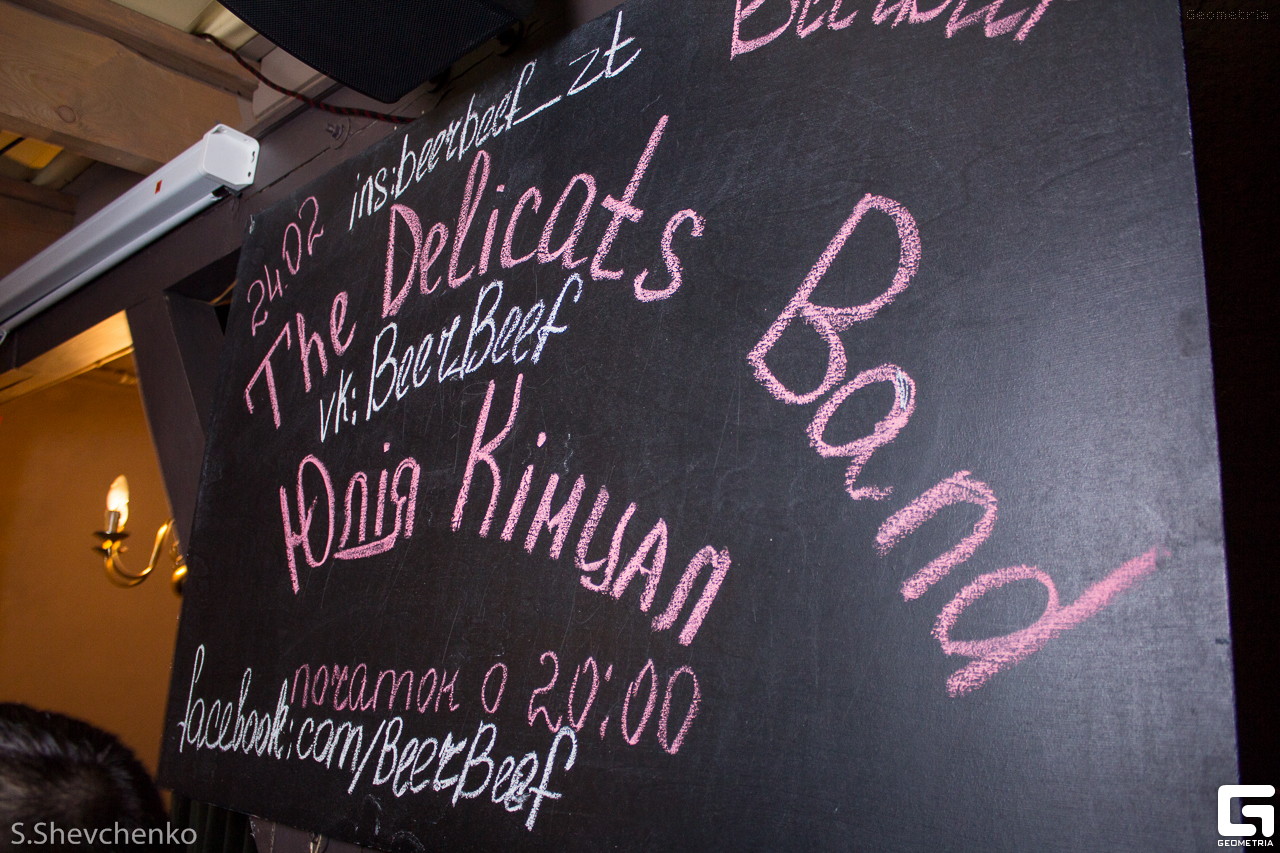 Geometria
ins:beerbeef_zt
24.02
The Delicats
Band
vk: BeerBeef
Юлія Кімцал
початок о 20:00
facebook.com/BeerBeef
S.Shevchenko
GEOMETRIA